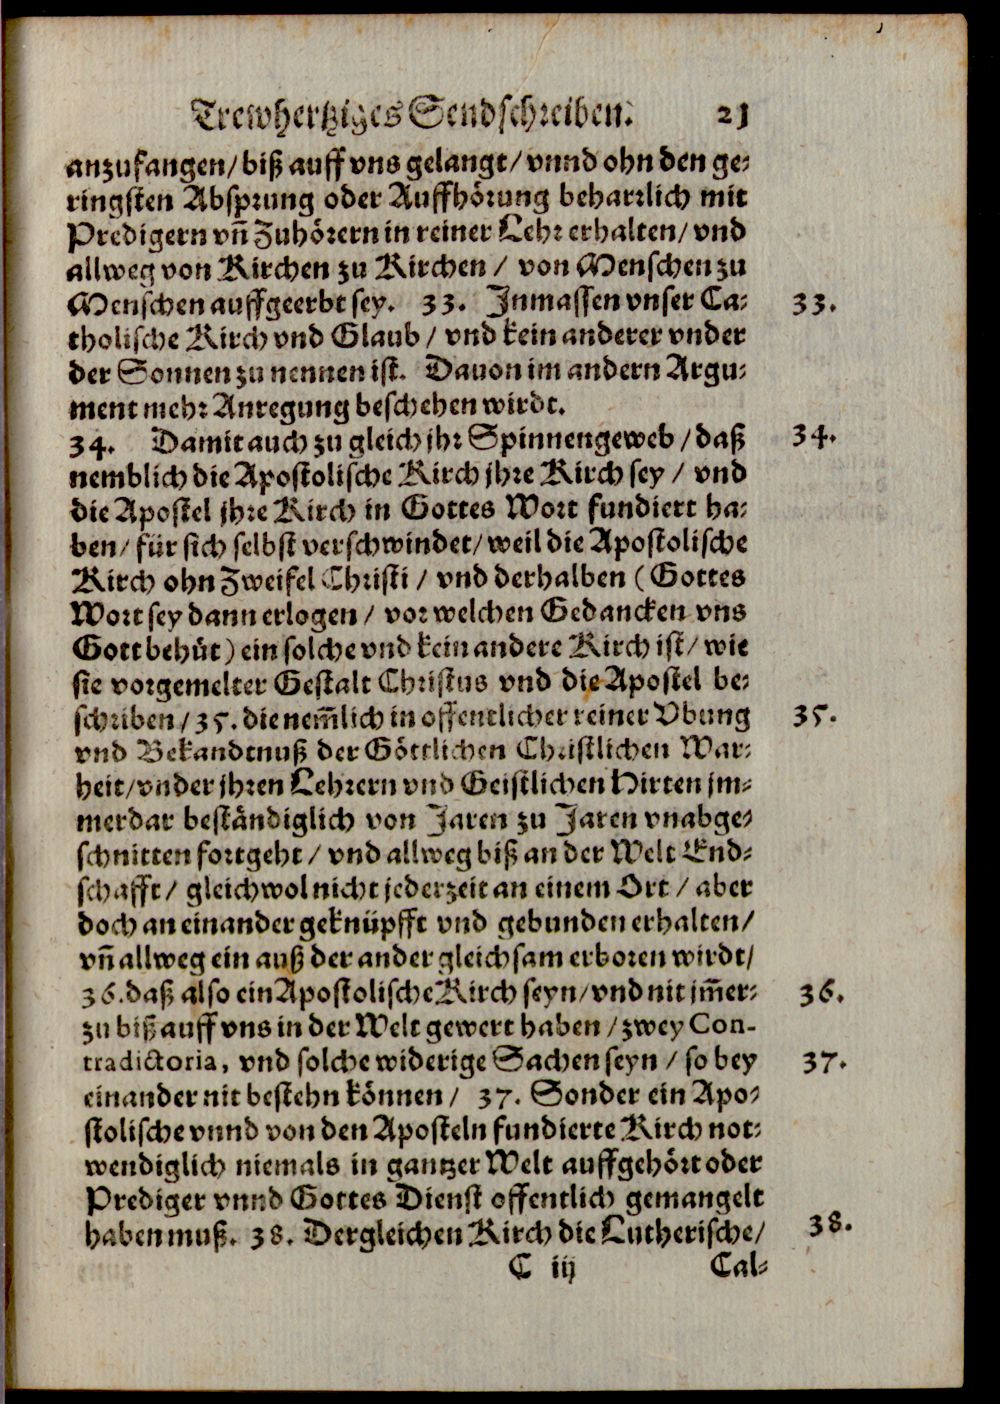 Trewhertziges Sendschreiben. 21
anzufangen/ biß auff vns gelangt/ vnnd ohn den ge-
ringsten Absprung oder Auffhörung beharrlich mit
Predigern vn̄ Zuhörern in reiner Lehr erhalten/ vnd
allweg von Kirchen zu Kirchen / von Menschen zu
Menschen auffgeerbt sey. 33. Inmassen vnser Ca- 33.
tholische Kirch vnd Glaub / vnd kein anderer vnder
der Sonnen zu nennen ist. Dauon im andern Argu-
ment mehr Anregung beschehen wirdt.
34. Damit auch zu gleich jhr Spinnengeweb / daß 34.
nemblich die Apostolische Kirch jhre Kirch sey / vnd
die Apostel jhre Kirch in Gottes Wort fundiert ha-
ben/ für sich selbst verschwindet/ weil die Apostolische
Kirch ohn Zweifel Christi / vnd derhalben (Gottes
Wort sey dann erlogen / vor welchen Gedancken vns
Gott behüt) ein solche vnd kein andere Kirch ist/ wie
sie vorgemelter Gestalt Christus vnd die Apostel be-
schriben / 35. die nem̄lich in offentlicher reiner Vbung 35.
vnd Bekandtnuß der Göttlichen Christlichen War-
heit/ vnder jhren Lehrern vnd Geistlichen Hirten jm-
merdar beständiglich von Jaren zu Jaren vnabge-
schnitten fortgeht / vnd allweg biß an der Welt End-
schafft / gleichwol nicht jederzeit an einem Ort / aber
doch an einander geknüpfft vnd gebunden erhalten/
vn̄ allweg ein auß der ander gleichsam erboren wirdt/
36. daß also ein Apostolische Kirch seyn/ vnd nit jm̄er- 36.
zu biß auff vns in der Welt gewert haben / zwey Con-
tradictoria, vnd solche widerige Sachen seyn / so bey 37.
einander nit bestehn können / 37. Sonder ein Apo-
stolische vnnd von den Aposteln fundierte Kirch not-
wendiglich niemals in gantzer Welt auffgehört oder
Prediger vnnd Gottes Dienst offentlich gemangelt
haben muß. 38. Dergleichen Kirch die Lutherische/ 38.
C iij Cal-